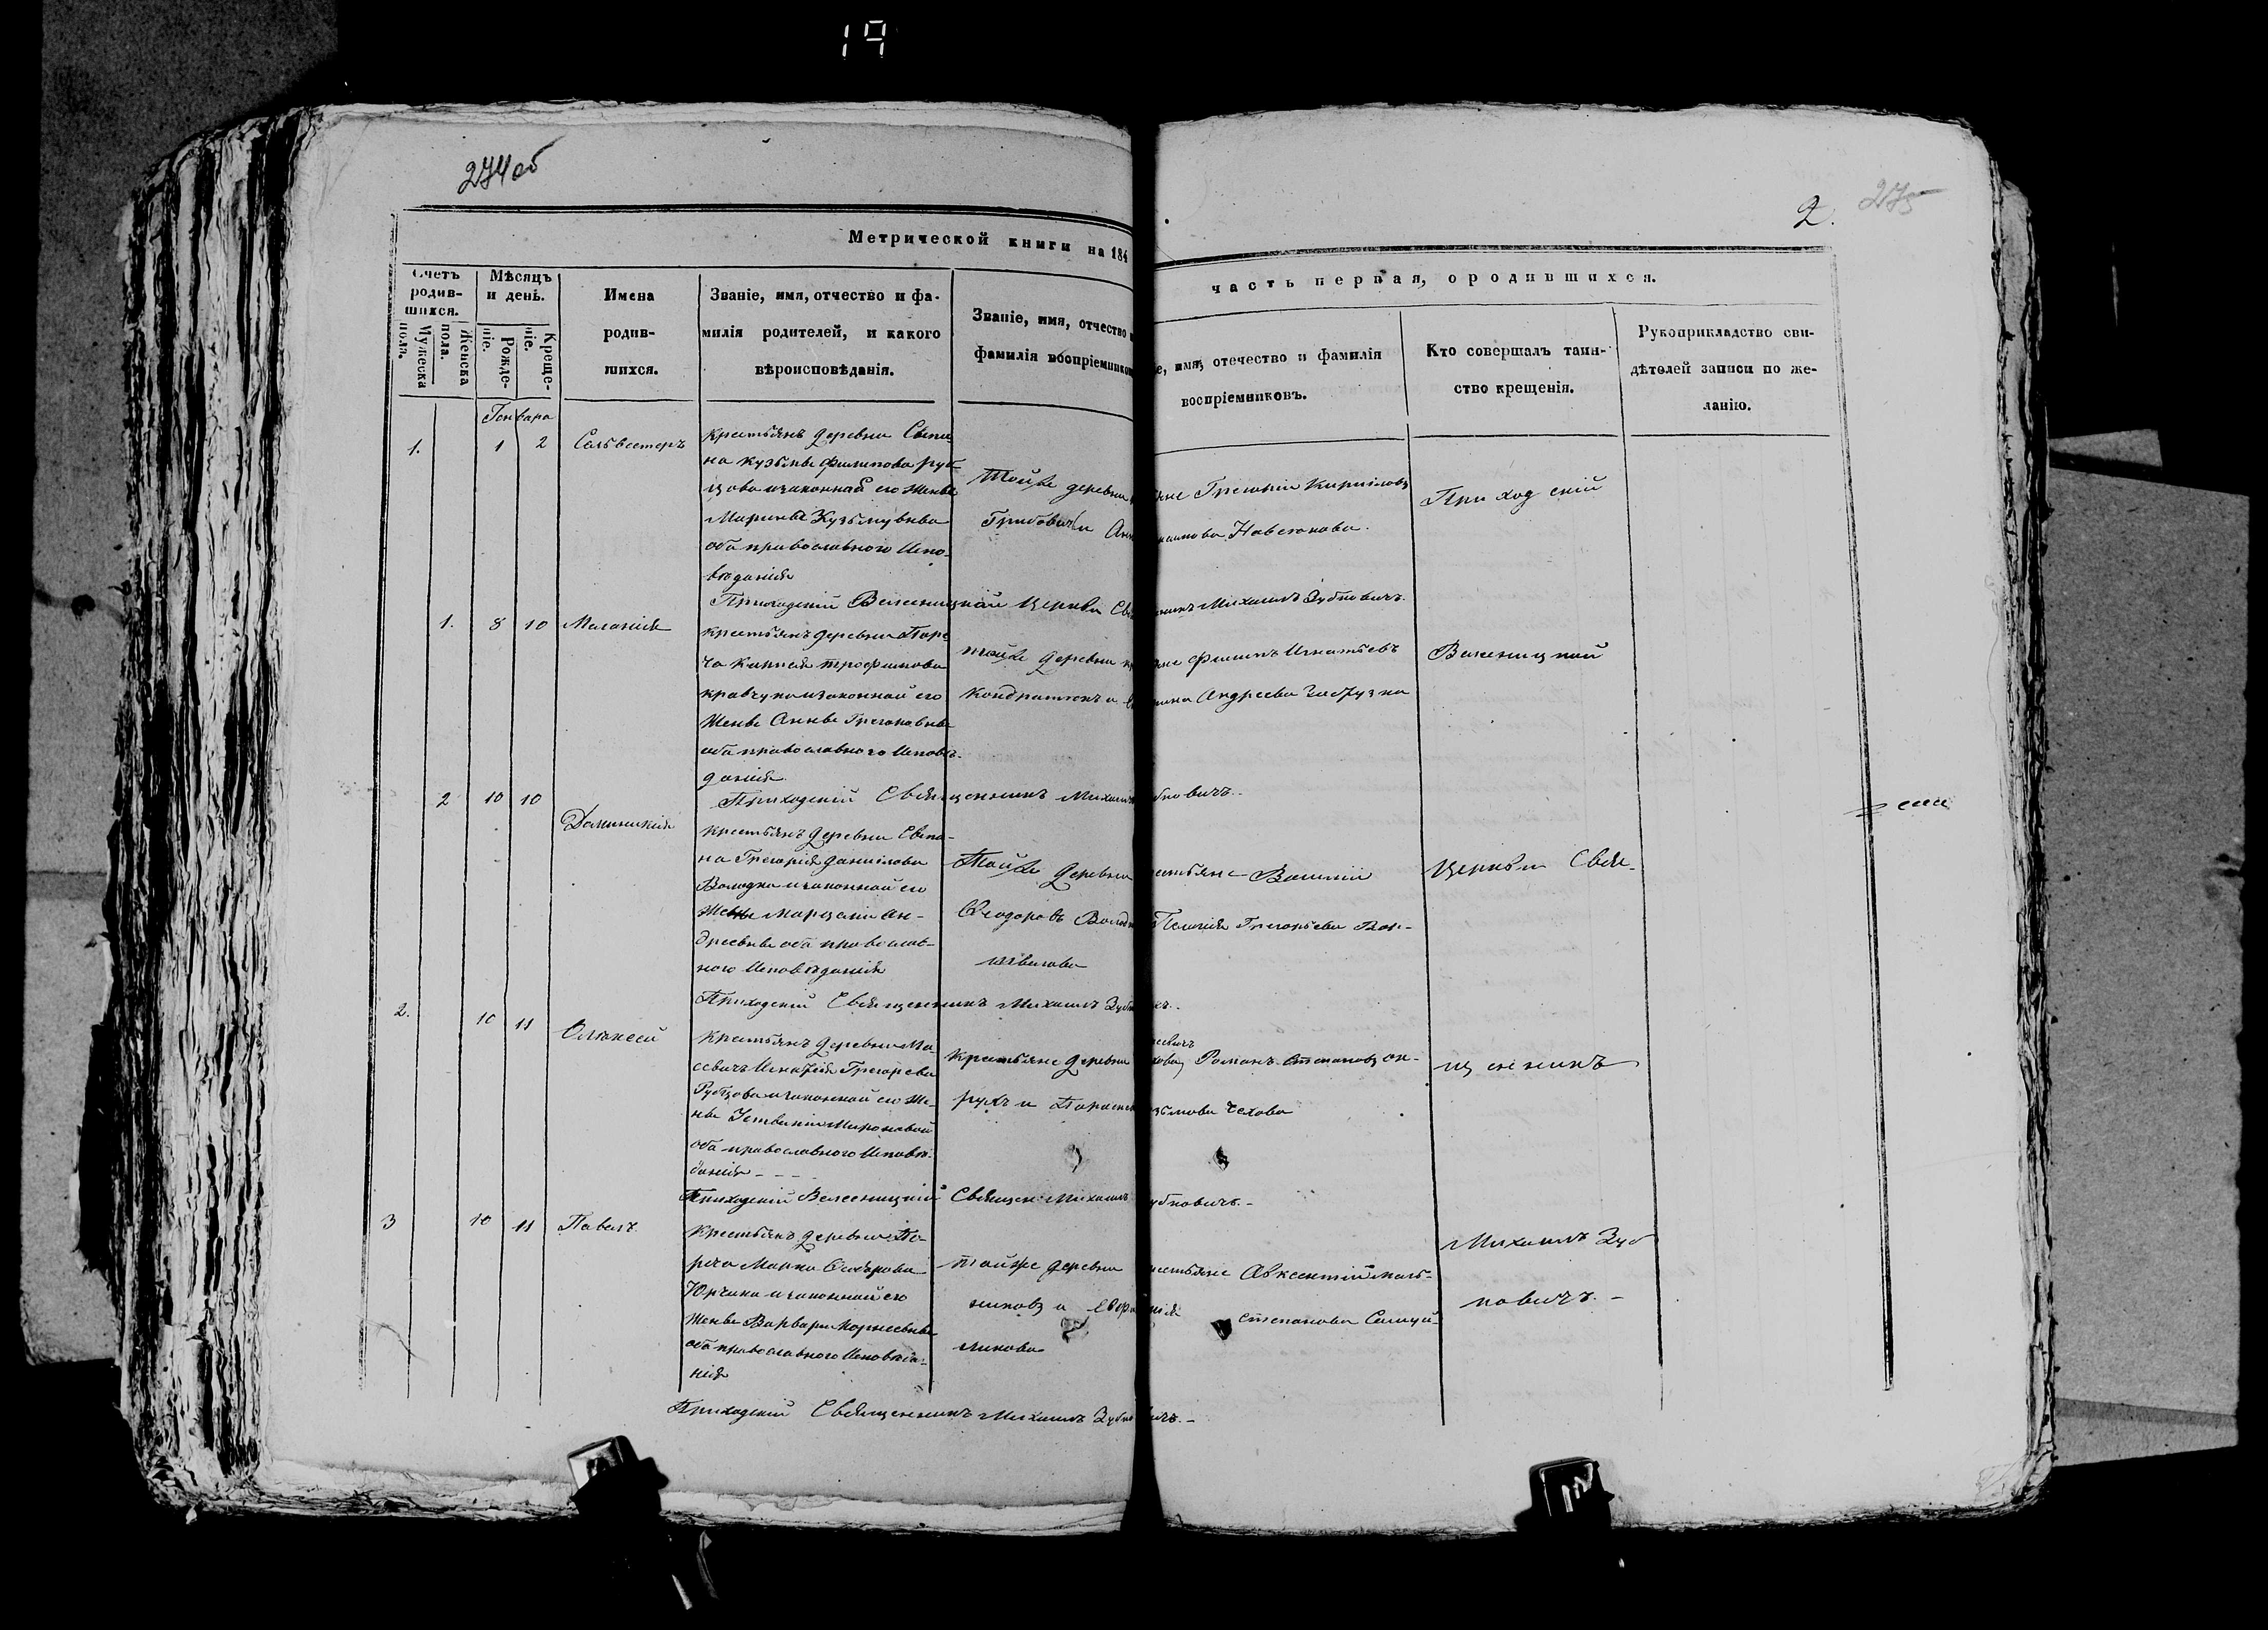 19
274об
2. 275
Метрической книги на 184
часть первая, о родившихся.
Счетъ родив-шихся.
Мужеска пола.
Женска пола.
Мѣсяцъ и день.
Рожде-ніе.
Креще-ніе.
Имена родив-шихся.
Званіе, имя, отчество и фа-
милія родителей, и какого
вѣроисповѣданія.
Званіе, имя, отчество и
фамилія воспріемников
е, имя, отечество и фамилія
воспріемниковъ.
Кто совершалъ таин-
ство крещенія.
Рукоприкладство сви-
дѣтелей записи по же-
ланію.
Генваря
1. 1 2 Сельвестеръ
крестьянъ деревни
на кузьмы Филипова руб
цова изаконной его Жены
Марины Кузьмувны
оба православного Испо-
вѣданія
Тойже деревни
Грибовичъ и Анн
яне Григорій Кириловъ
Навсюкова.
Приходскій
Приходскій Велесницкой Церкви Св
енникъ Михаилъ Зубковичъ.
1. 8 10 Маланія
крестьянъ деревни Паре
ча трофимова
кравчука изаконной его
Жены Анны Григоровны
оба православного Исповѣ-
данія
тойже деревни кр
яне Филипъ Игнатьевъ
Кондратюкъ и
Андреева
Велесницкой
Приходскій Священникъ Михаил
убковичъ.
2 10 10
Доминикія
крестьянъ деревни Свепа-
на Григорія Данилова
Володки изаконной его
Жены Марцели Ан-
дреевны оба православ-
ного Исповѣданія
Тойже деревни
естьяне Василій
Феодоровъ Волод
Пелагія Григорьева
Церкви Свя-
Приходскій Священникъ Михаилъ Зубк
2. 10 11
Олексей
крестьянъ деревни Мо-
севичъ Игнатія Григорева
Рубцова изаконной его Же-
ны Устиніи Мироновой
оба православного Исповѣ-
данія
Крестьяне деревни
Романъ Степановъ
рукъ и Параск
узьмова Чехова
щенникъ
Приходскій Велесницкій Священ: Михаилъ
убковичъ.-
3 10 11 Павелъ.
крестьянъ деревни По-
реча Марка
Юрчика изаконной его
Жены Варвары
оба православного Исповѣда-
нія
тойже деревни
рестьяне Авксентій
и Евфро
нія
Степанова
Михаилъ Зуб
ковичъ.-
Приходскій Священникъ Михаилъ Зубко
ичъ.-